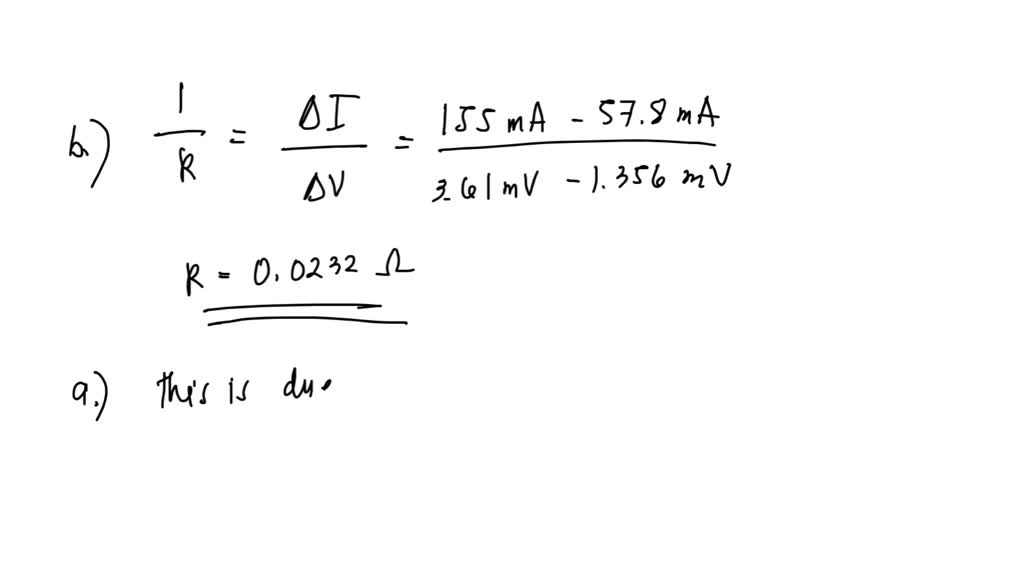 b.) 1/R = ΔI/ΔV = 155 mA - 57.8 mA / 3.61 mV - 1.356 mV
R = 0.0232 Ω
a.) this is due